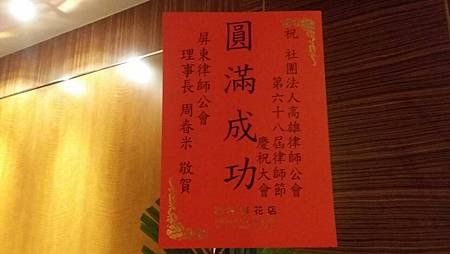 祝 社團法人高雄律師公會
第六十八屆律師節
慶祝大會
圓滿成功
屏東律師公會
理事長 周春米 敬賀
花店